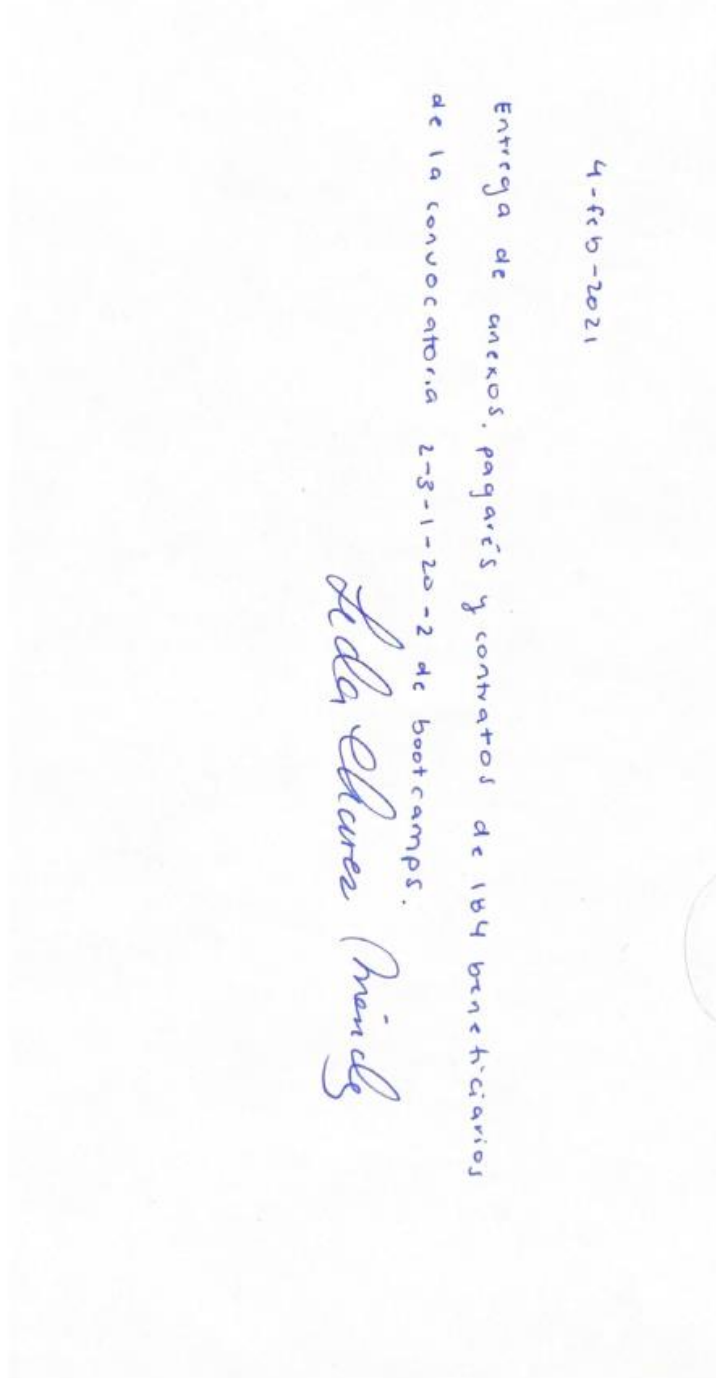 4-feb-2021
Entrega de anexos, pagarés y contratos de 184 beneficiarios
de la convocatoria 2-3-1-20-2 de bootcamps.
Leda Chavez Méndez